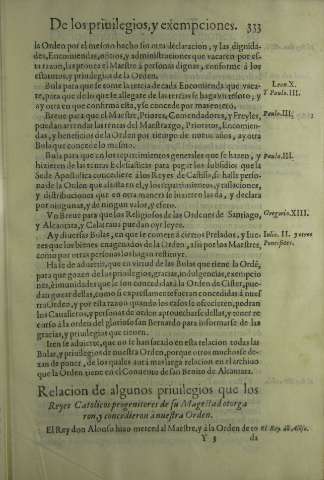 De los priuilegios, y exempciones. 333
la Orden por el mesmo hecho sin otra declaracion, y las dignida-
des, Encomiendas, oficios, y administraciones que vacaren por es-
ta razon, las prouea el Maestre à personas dignas, conforme à los
estatutos y priuilegios de la Orden.
Bula para que se tome la tercia de cada Encomienda que vaca- Leon X.
re, para que de lo que se allegate de las tercias se haga vn tesoro; y Y Paulo. III.
ay otra en que confirma esta, y se concede por mas entero.
Breue para que el Maestre, Priores, Comendadores, y Freyles, Paulo. III.
puedan arrendar las rentas del Maestrazgo, Prioratos, Encomien-
das, y beneficios de la Orden por tiempo de nueue años, ay otra
Bula que concede lo mesmo.
Bula para que en los repartimientos generales que se hazen, y Paulo. III.
hizieren de las rentas Eclesiasticas para pagar los subsidios que la
Sede Apostolica concediere à los Reyes de Castilla, se halle perso-
na de la Orden que assista en el, y los repartimientos, y tassaciones,
y distribuciones que en otra manera se hizieren las da, y declara
por ningunas, y de ningun valor, y efeto.
Vn Breue para que los Religiosos de las Ordenes de Santiago, Gregorio. XIII.
y Alcantara, y Calatraua puedan oyr leyes.
Ay diuersas Bulas, en que se comete à ciertos Prelados, y Iue- Iulio. II. y otros
zes que los bienes enagenados de la Orden, assi por los Maestres, Pontifices.
como por otras personas los hagan restituyr.
Ha se de aduertir, que en virtud de las Bulas que tiene la Ordē,
para que gozen de las priuilegios, gracias, indulgencias, exempcio-
nes, è inmunidades que se son concedidas à la Orden de Cister, pue-
dan gozar dellas, como si expressamente fueran concedidas à nues-
tra Orden, y por esta razon quando los casos se ofrecieren, podran
los Caualleros, y personas de orden aprouecharse dellas, y tener re-
curso à la orden del glorioso san Bernardo para informarse de las
gracias, y priuilegios que tienen.
Iten se aduierte, que no se han sacado en esta relacion todas las
Bulas, y priuilegios de nuestra Orden, porque otros muchos se de-
xan de poner, de los quales auia mas larga relacion en el archiuo
que la Orden tiene en el Conuento de san Benito de Alcantara.
Relacion de algunos priuilegios que los
Reyes Catolicos progenitores de su Magestad otorga
ron, y concedieron à nuestra Orden.
El Rey don Alonso hizo merced al Maestre, y à la Orden de to El Rey dō Alōso.
Y 3 da